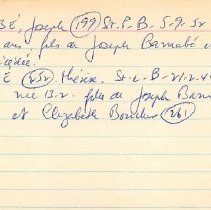 BÉ, Joseph (199) St.P.-B- 5-9-52
ans, fils de Joseph Barnabé e

É (252) Thérèse. St-L-B-21-2-4
née B-2. fille de Joseph Barn
et Elizabeth Boucher (261)